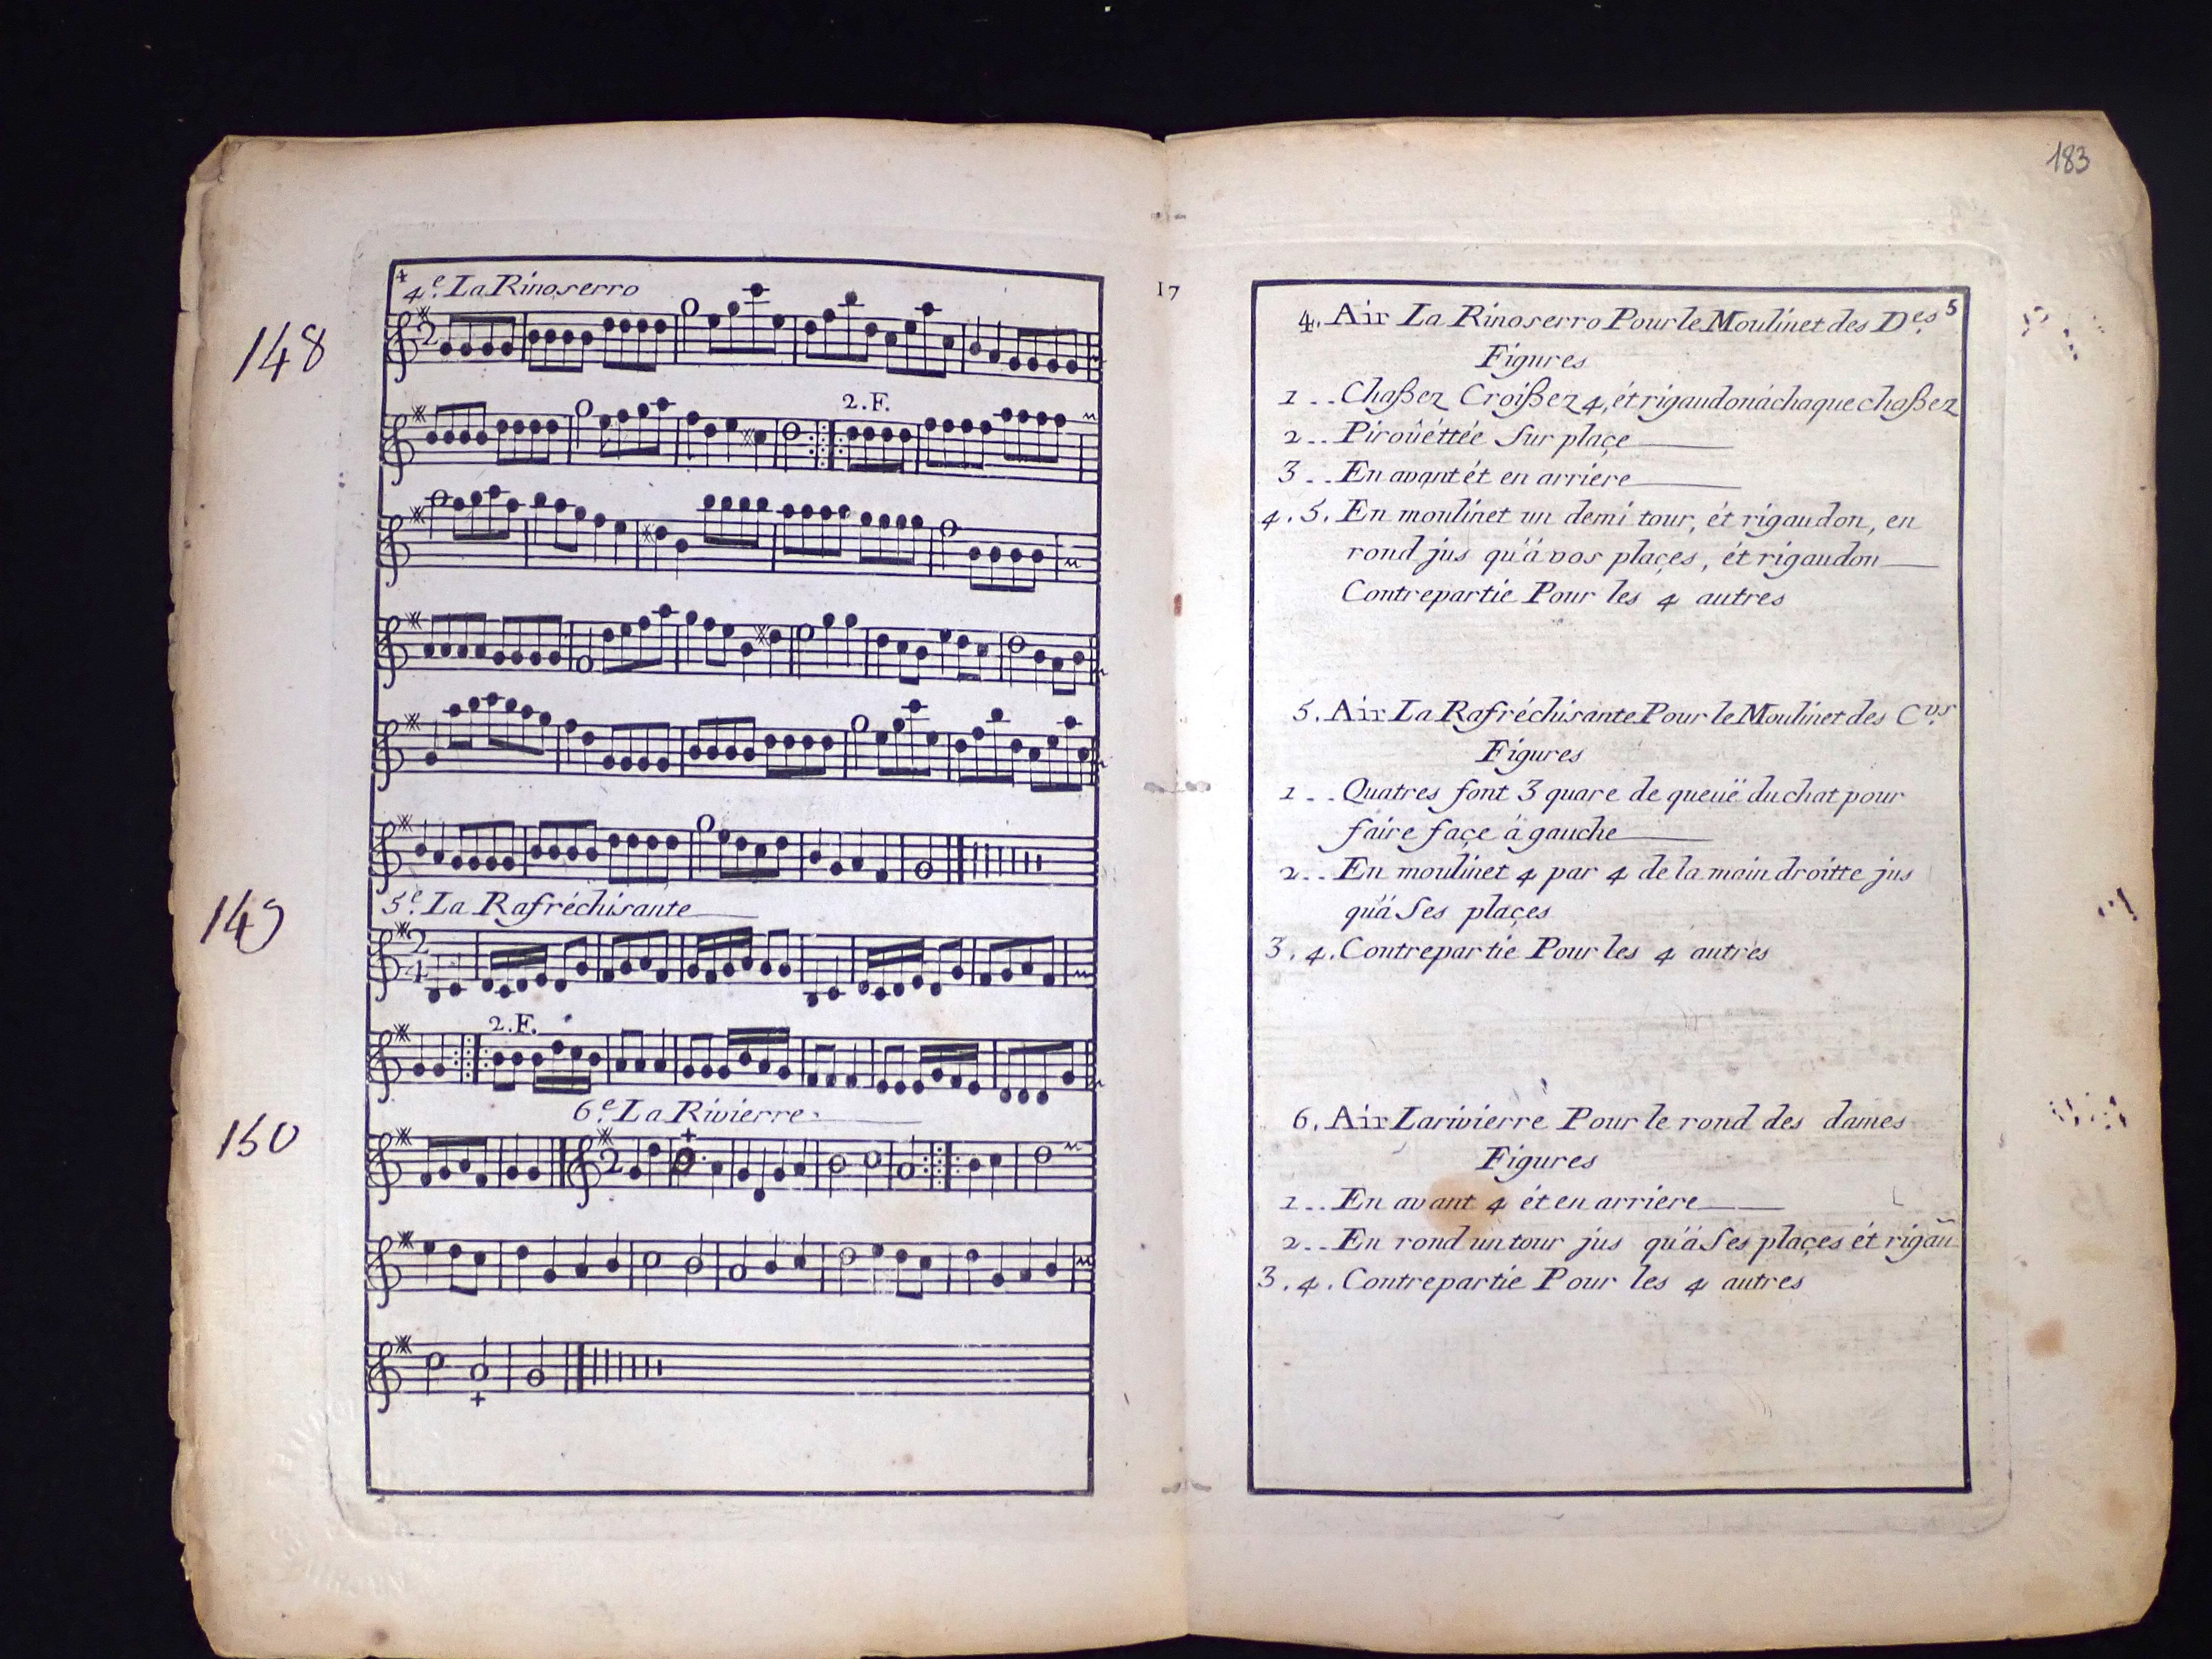 4
4.e La Rinoserro
148
2
2.F.
5.e La Rafréchisante
149
2
4
2.F.
6.e La Rivierre
150
2
17
183
5
4. Air La Rinoserro Pour le Moulinet des D.es
Figures
1 .. Chaßez Croißez 4, ét rigaudon á chaque chaßez
2 .. Piroûéttée Sur plaçe
3 .. En avant ét en arriere
4. 5. En moulinet un demi tour, ét rigaudon, en
rond jus qu'á vos plaçes, ét rigaudon
Contrepartie Pour les 4 autres
5. Air La Rafréchisante Pour le Moulinet des C.vs
Figures
1 .. Quatres font 3 quare de queuë du chat pour
faire façe á gauche
2 .. En moulinet 4 par 4 de la main droitte jus
qu'á Ses plaçes
3. 4. Contrepartie Pour les 4 autres
6. Air Larivierre Pour le rond des dames
Figures
1 .. En avant 4 ét en arriere
2 .. En rond un tour jus qu'á Ses plaçes ét rigaũ
3. 4. Contrepartie Pour les 4 autres